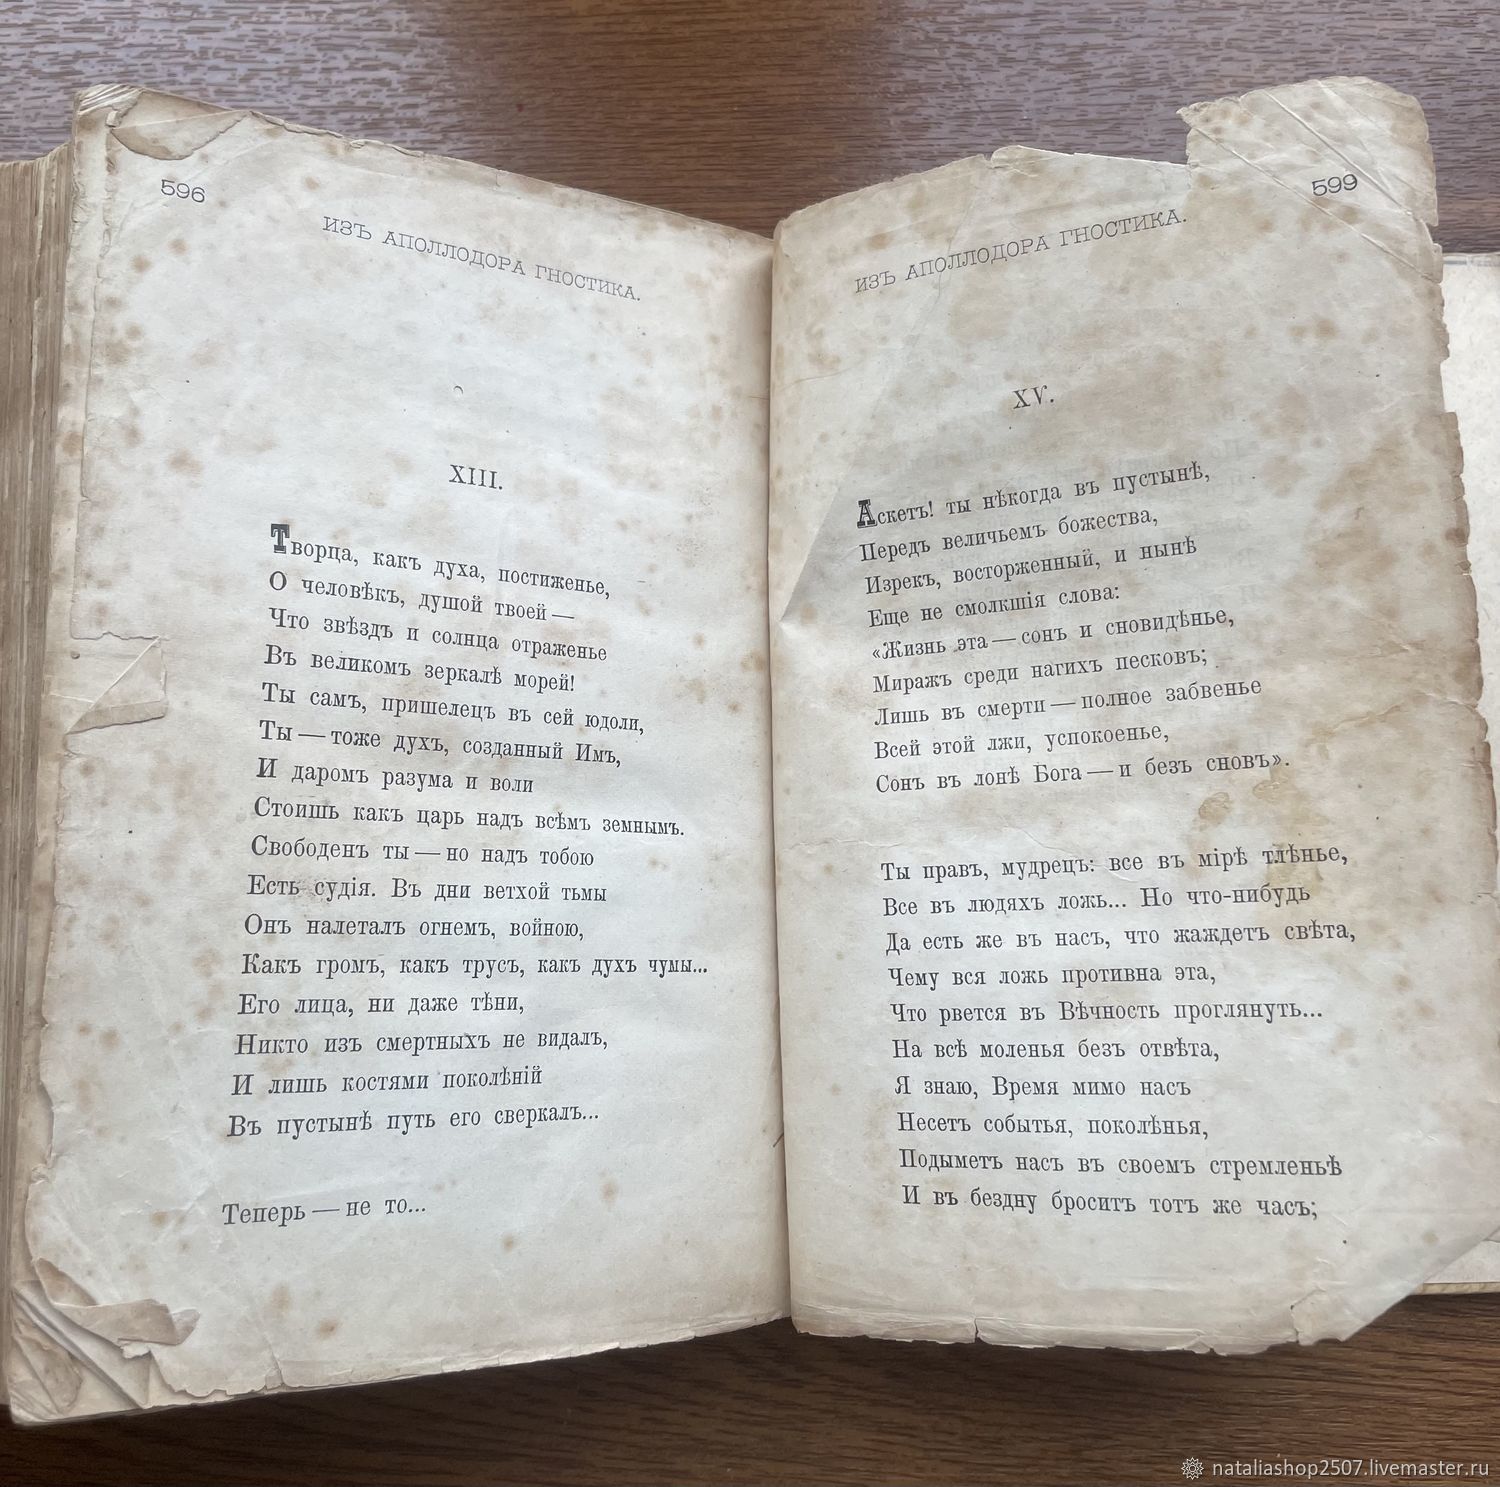 596
ИЗЪ АПОЛЛОДОРА ГНОСТИКА.
XIII.
Творца, какъ духа, постиженье,
О человѣкъ, душой твоей —
Что звѣздъ и солнца отраженье
Въ великомъ зеркалѣ морей!
Ты самъ, пришелецъ въ сей юдоли,
Ты — тоже духъ, созданный Имъ,
И даромъ разума и воли
Стоишь какъ царь надъ всѣмъ земнымъ.
Свободенъ ты — но надъ тобою
Есть судія. Въ дни ветхой тьмы
Онъ налеталъ огнемъ, войною,
Какъ громъ, какъ трусъ, какъ духъ чумы...
Его лица, ни даже тѣни,
Никто изъ смертныхъ не видалъ,
И лишь костями поколѣній
Въ пустынѣ путь его сверкалъ...
Теперь — не то...
599
ИЗЪ АПОЛЛОДОРА ГНОСТИКА.
XV.
Аскетъ! ты нѣкогда въ пустынѣ,
Передъ величьемъ божества,
Изрекъ, восторженный, и нынѣ
Еще не смолкшія слова:
«Жизнь эта — сонъ и сновидѣнье,
Миражъ среди нагихъ песковъ;
Лишь въ смерти — полное забвенье
Всей этой лжи, успокоенье,
Сонъ въ лонѣ Бога — и безъ сновъ».
Ты правъ, мудрецъ: все въ мірѣ тлѣнье,
Все въ людяхъ ложь... Но что-нибудь
Да есть же въ насъ, что жаждетъ свѣта,
Чему вся ложь противна эта,
Что рвется въ Вѣчность проглянуть...
На всѣ моленья безъ отвѣта,
Я знаю, Время мимо насъ
Несетъ событья, поколѣнья,
Подыметъ насъ въ своемъ стремленьѣ
И въ бездну броситъ тотъ же часъ;
nataliashop2507.livemaster.ru